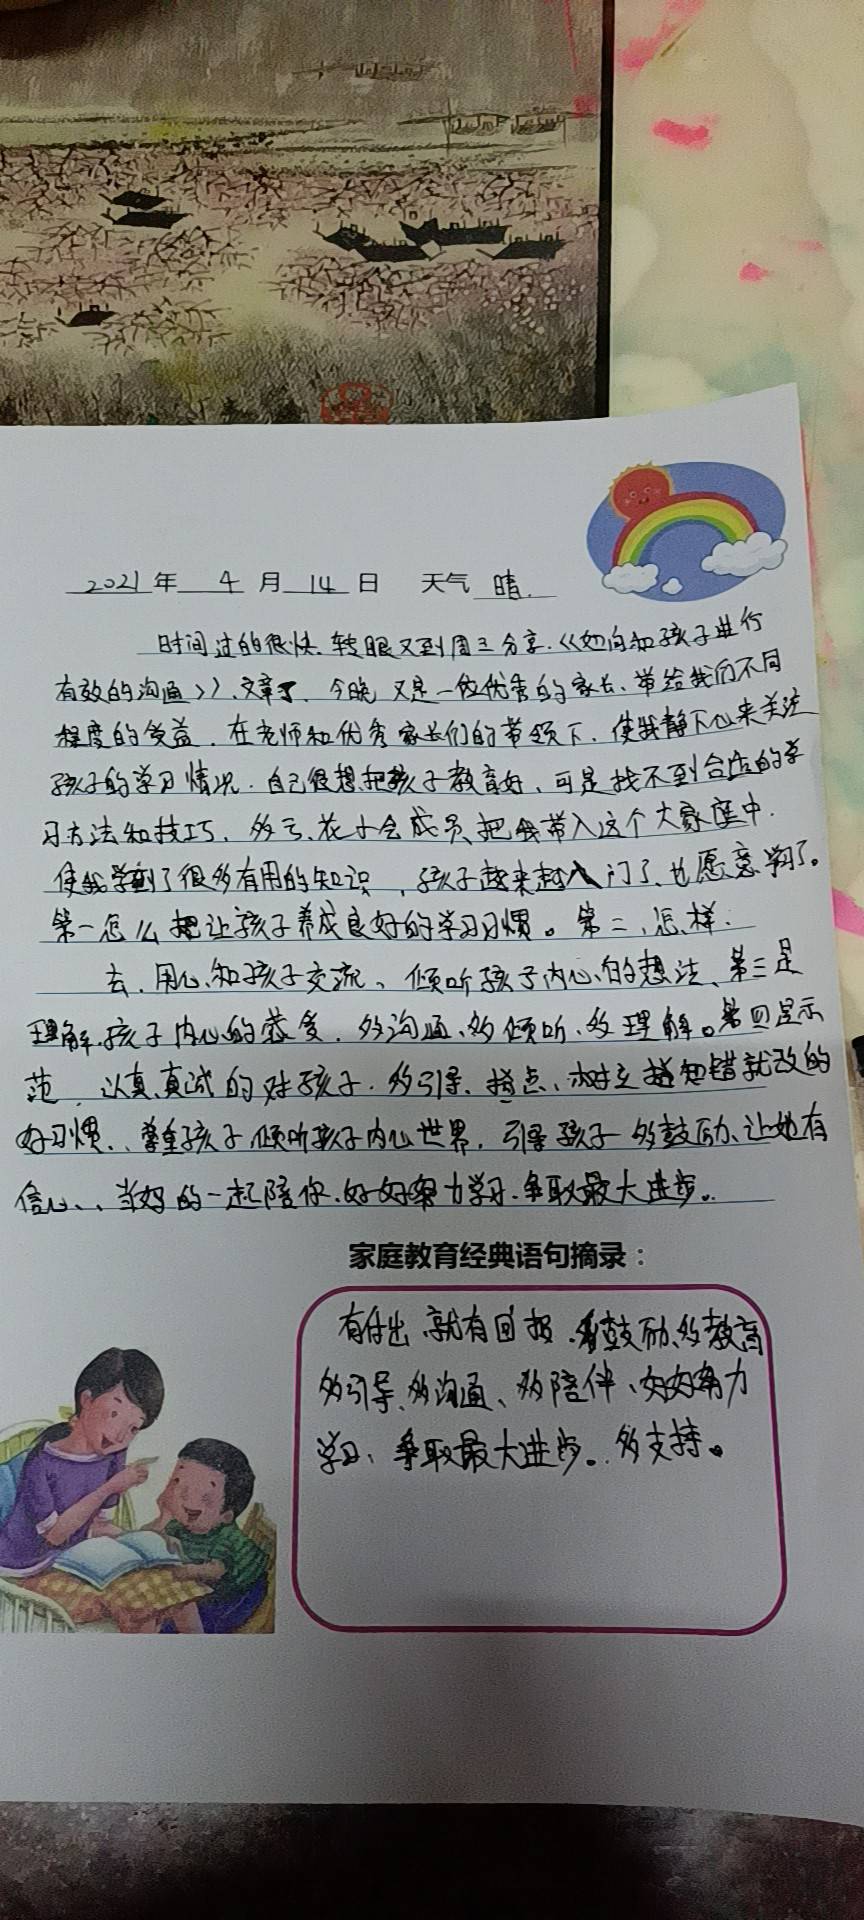 2021年 4 月 14 日 天气 晴.
时间过的很快、转眼又到周三分享.《如何和孩子进行
有效的沟通》、文章了、今晚又是一位优秀的家长、带给我们不同
程度的受益.在老师和优秀家长们的带领下、使我静下心来关注
孩子的学习情况.自己很想把孩子教育好、可是找不到合适的学
习方法和技巧、多亏、花小会成员、把我带入这个大家庭中.
使我学到了很多有用的知识,孩子越来越入门了、也愿意学习了。
第一怎么把让孩子养成良好的学习习惯。第二、怎样:
去.用心和孩子交流、倾听孩子内心的想法、第三是
理解.孩子内心的感受.多沟通、多倾听、多理解。第四是示
范.认真、真诚的对孩子.多引导、指点、树立知错就改的
好习惯、.尊重孩子倾听孩子内心世界.引导孩子多鼓励、让她有
信心、、当妈的一起陪你.好好努力学习.争取最大进步。
家庭教育经典语句摘录:
有付出、就有回报.多鼓励、多教育
多引导、多沟通、多陪伴、好好努力
学习、争取最大进步。.多支持。